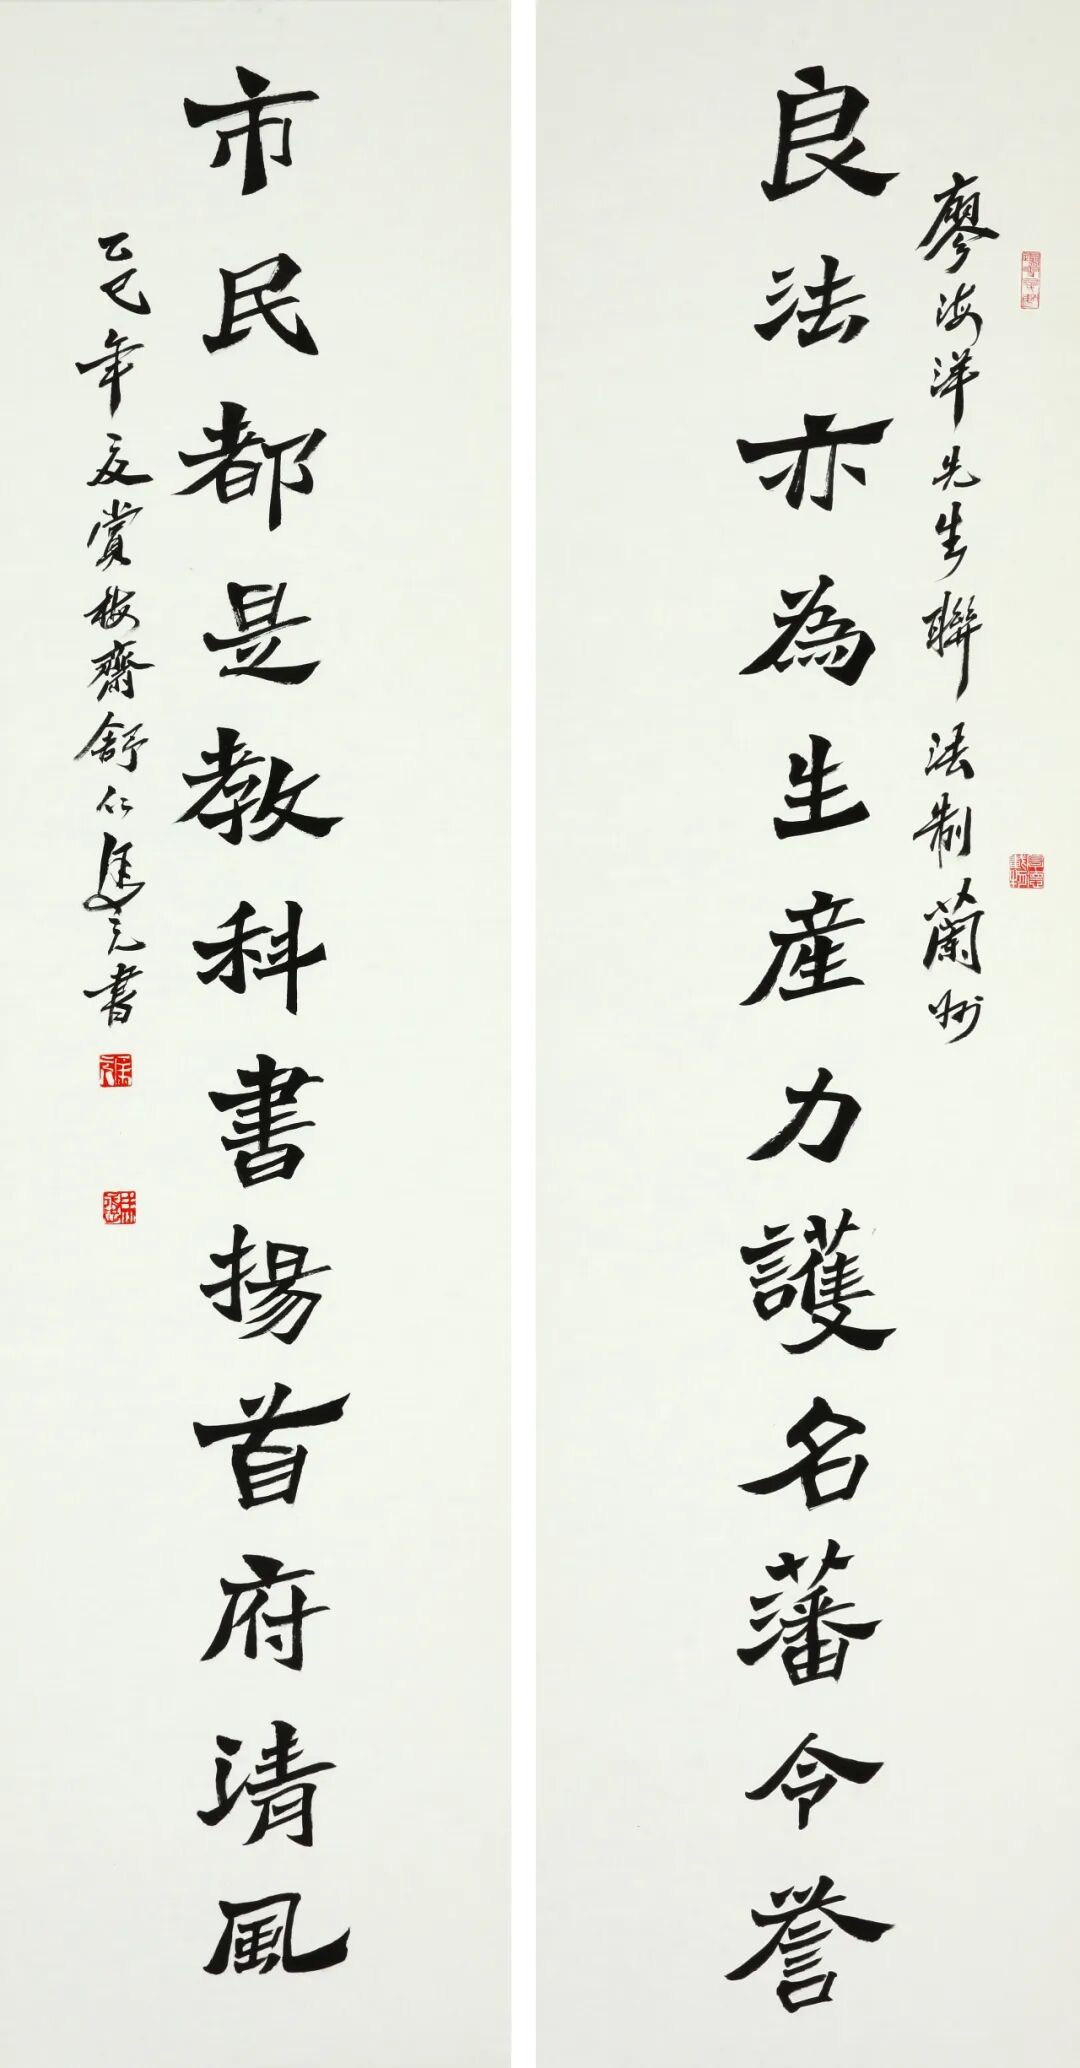 廖海洋先生聯 法制蘭州
良法亦為生產力護名藩令譽
市民都是教科書揚首府清風
乙巳年夏賞梅齋舒仁馬亮書